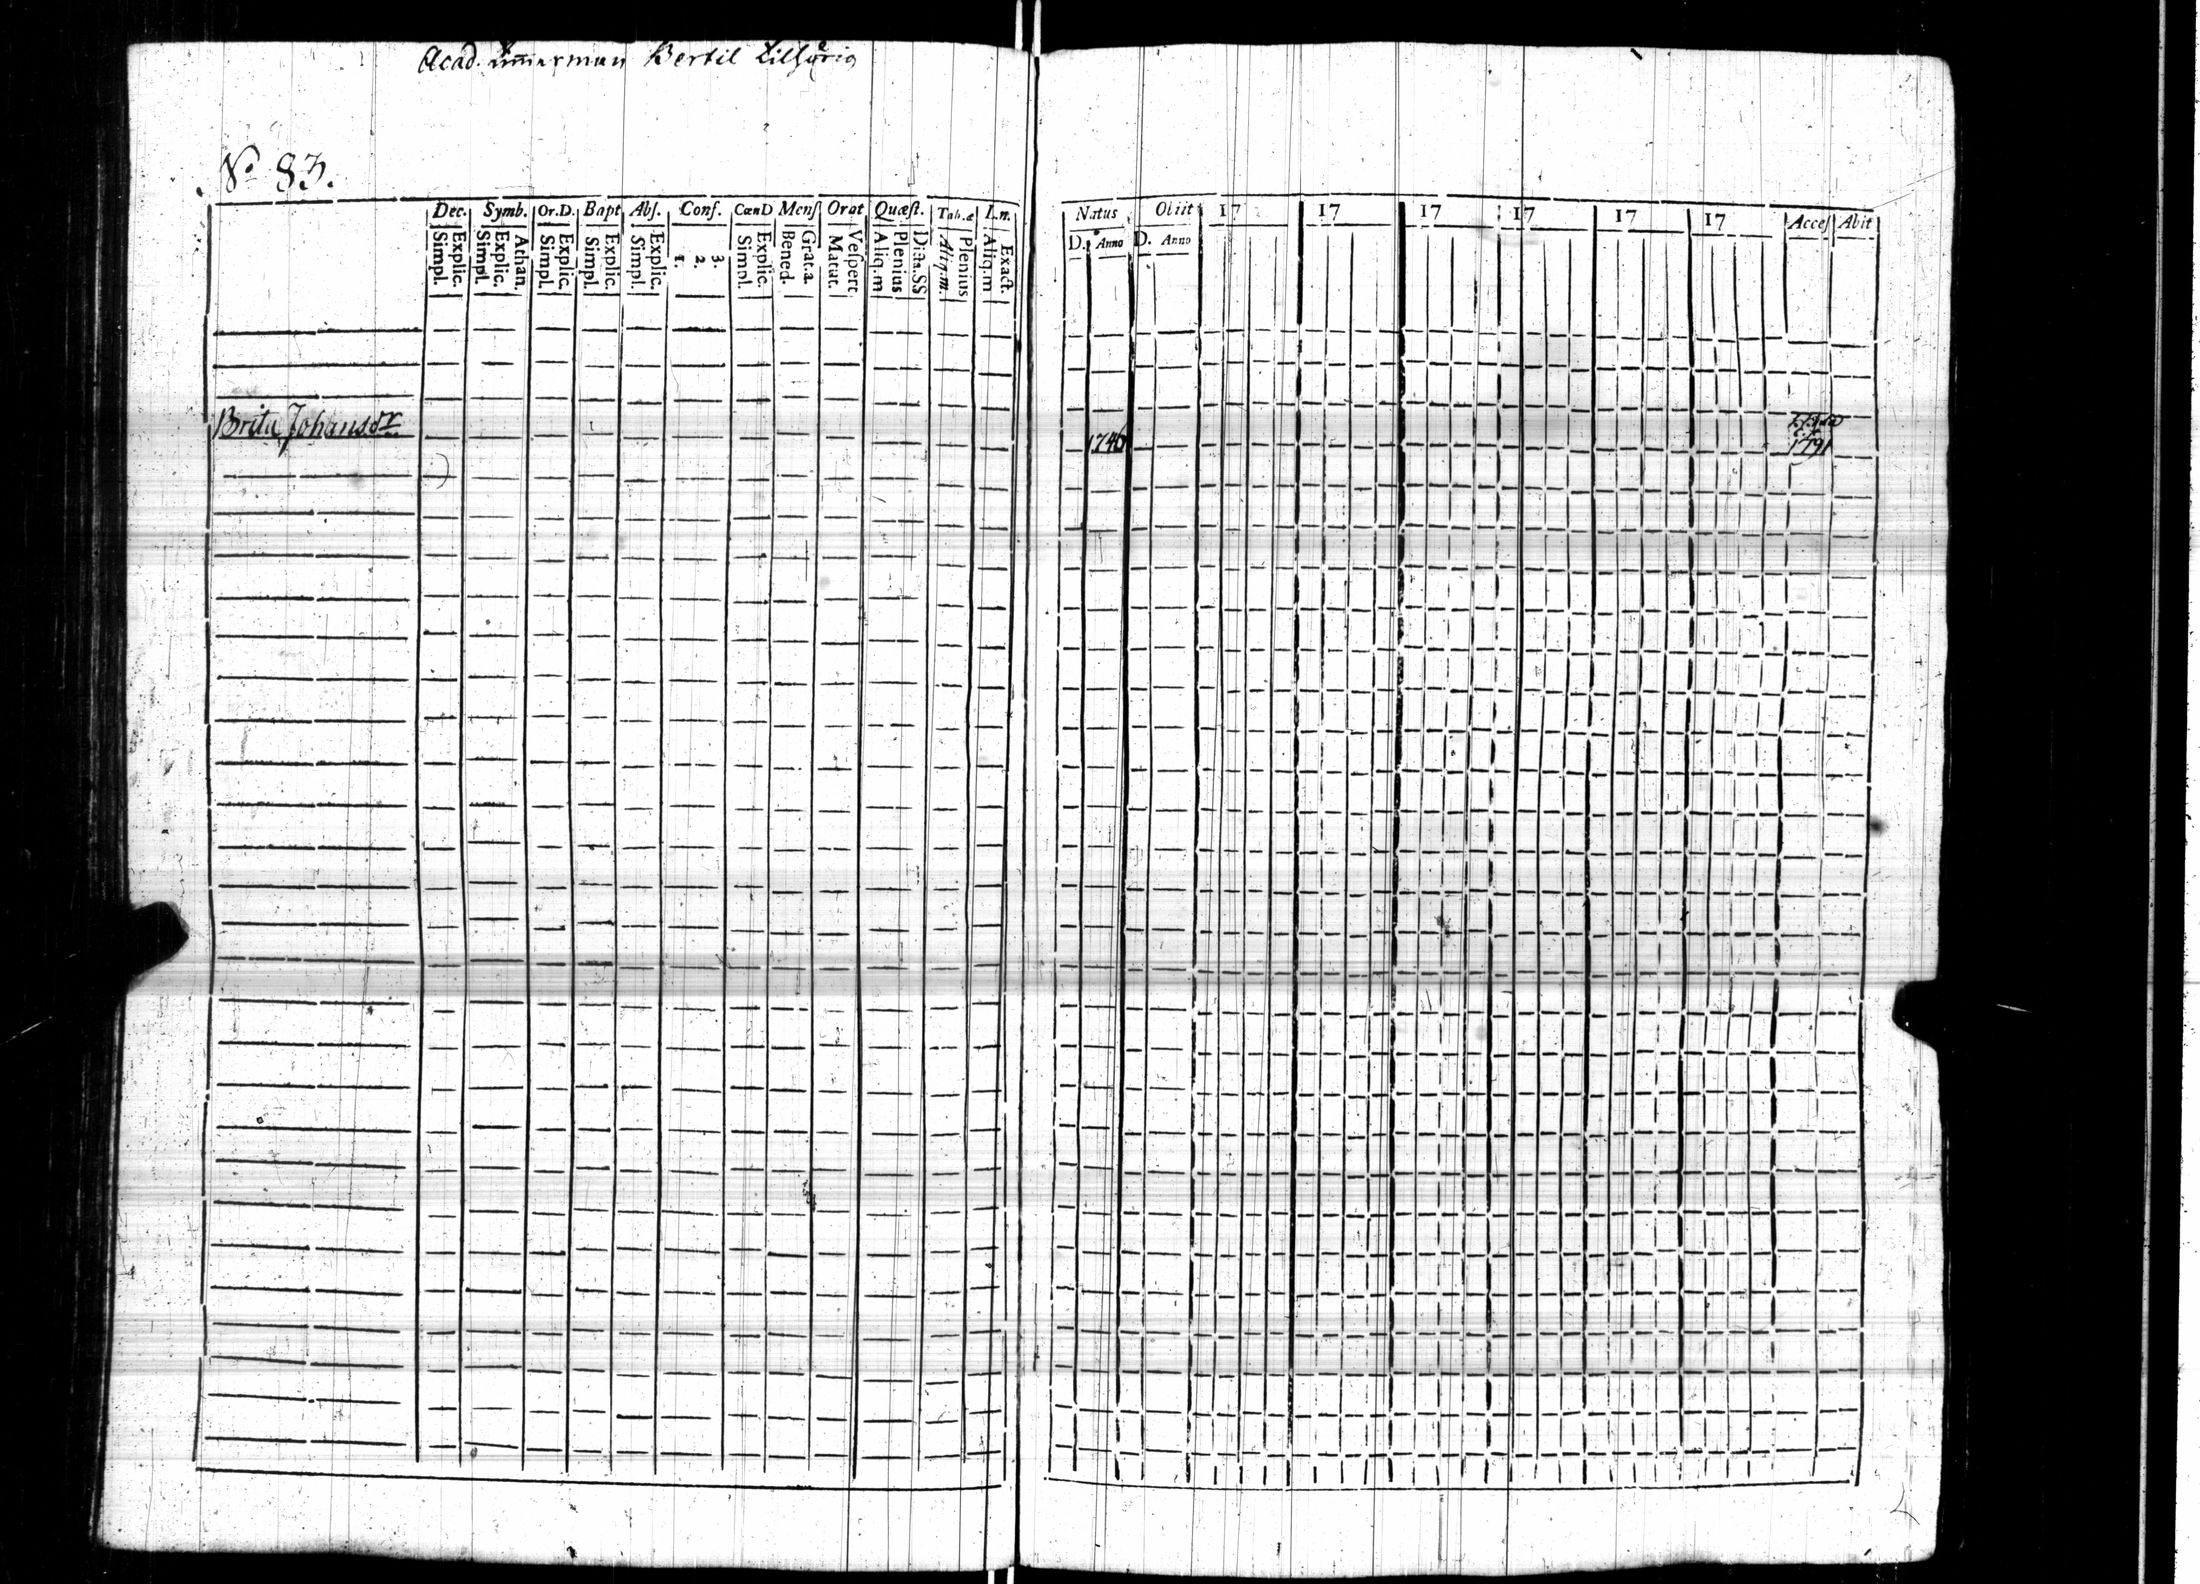 Acad. Timmerman Bertil
No 83.
Dec. Symb. Or.D. Bapt Abſ. Conf. CœnD Menſ Orat Quæſt. Tab.æ
Explic. Simpl. Athan. Explic. Simpl. Explic. Simpl. Explic. Simpl. Explic. Simpl. 3. 2. 1. Explic. Simpl. Grat.a. Bened. Veſpert Matut. Dicta.SS Plenius Aliq.m Plenius Aliq.m. Exact. Aliq.m
Natus Obiit 17 17 17 17 17 17 Acceſ Abit
D. Anno D. Anno
Brita Johansdr 1746
1791